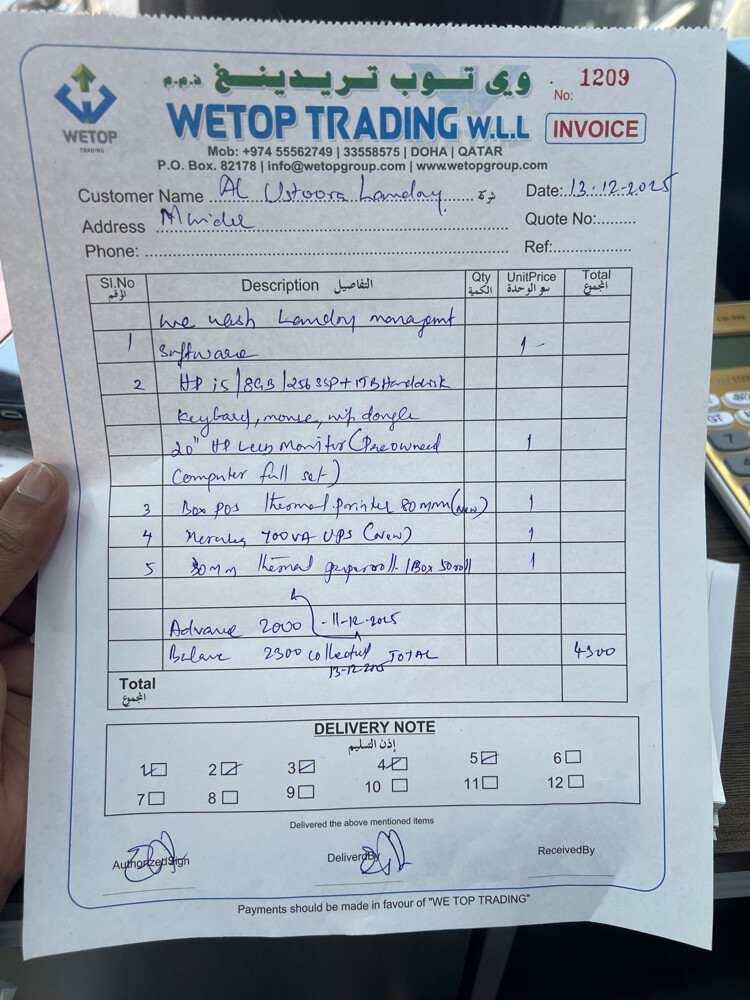 وي توب تريدينغ ذ.م.م
No: 1209
WETOP TRADING W.L.L
INVOICE
WETOP
TRADING
Mob: +974 55562749 | 33558575 | DOHA | QATAR
P.O. Box. 82178 | info@wetopgroup.com | www.wetopgroup.com
Customer Name Al Ustoora Landay شركة
Date: 13-12-2025
Address
Quote No:
Phone:
Ref:
Sl.No Description التفاصيل Qty UnitPrice Total
الرقم الكمية سعر الوحدة المجموع
we wash Landry managemt
1 Software 1-
2 HP i5/8GB/256 SSD+1TB Harddisk
keybard, mouse, wifi dongle
20" HP Monitor (Preowned 1
Computer full set)
3 Box POS thermal printer 80mm (new) 1
4 Mercury 700VA UPS (New) 1
5 80mm thermal paperroll 1Box 50roll 1
Advance 2000 - 11-12-2025
Balance 2300 collected TOTAL 4300
13-12-2025
Total
المجموع
DELIVERY NOTE
إذن التسليم
1 2 3 4 5 6
7 8 9 10 11 12
Delivered the above mentioned items
AuthorizedSign DeliverdBy ReceivedBy
Payments should be made in favour of "WE TOP TRADING"